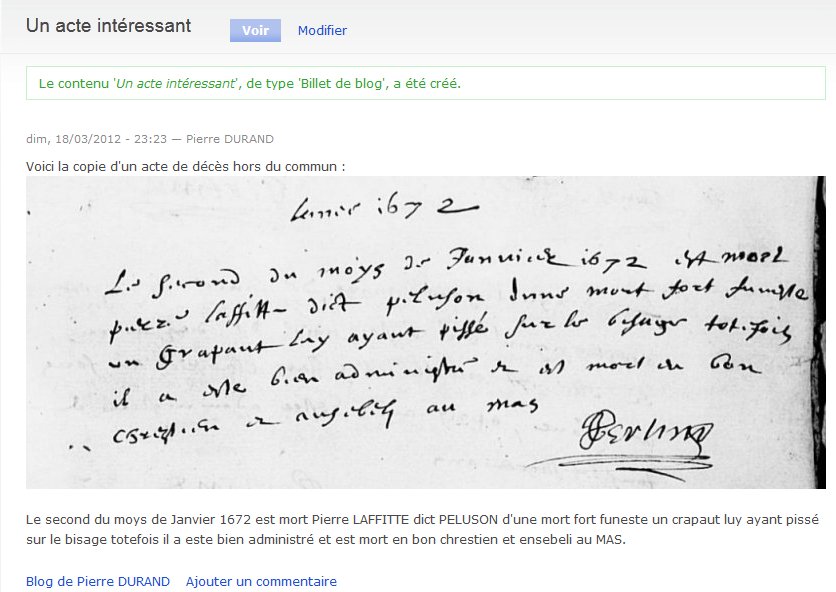 Un acte intéressant
Voir
Modifier
Le contenu 'Un acte intéressant', de type 'Billet de blog', a été créé.
dim, 18/03/2012 - 23:23 — Pierre DURAND
Voici la copie d'un acte de décès hors du commun :
Lanné 1672
Le second du moys de Janvier 1672 est mort
pierre laffitte dict peluson dune mort fort funeste
un Grapaut luy ayant pissé sur le bisage totefois
il a este bien administré et est mort en bon
chrestien et ensebely au mas
Le second du moys de Janvier 1672 est mort Pierre LAFFITTE dict PELUSON d'une mort fort funeste un crapaut luy ayant pissé
sur le bisage totefois il a este bien administré et est mort en bon chrestien et ensebeli au MAS.
Blog de Pierre DURAND
Ajouter un commentaire